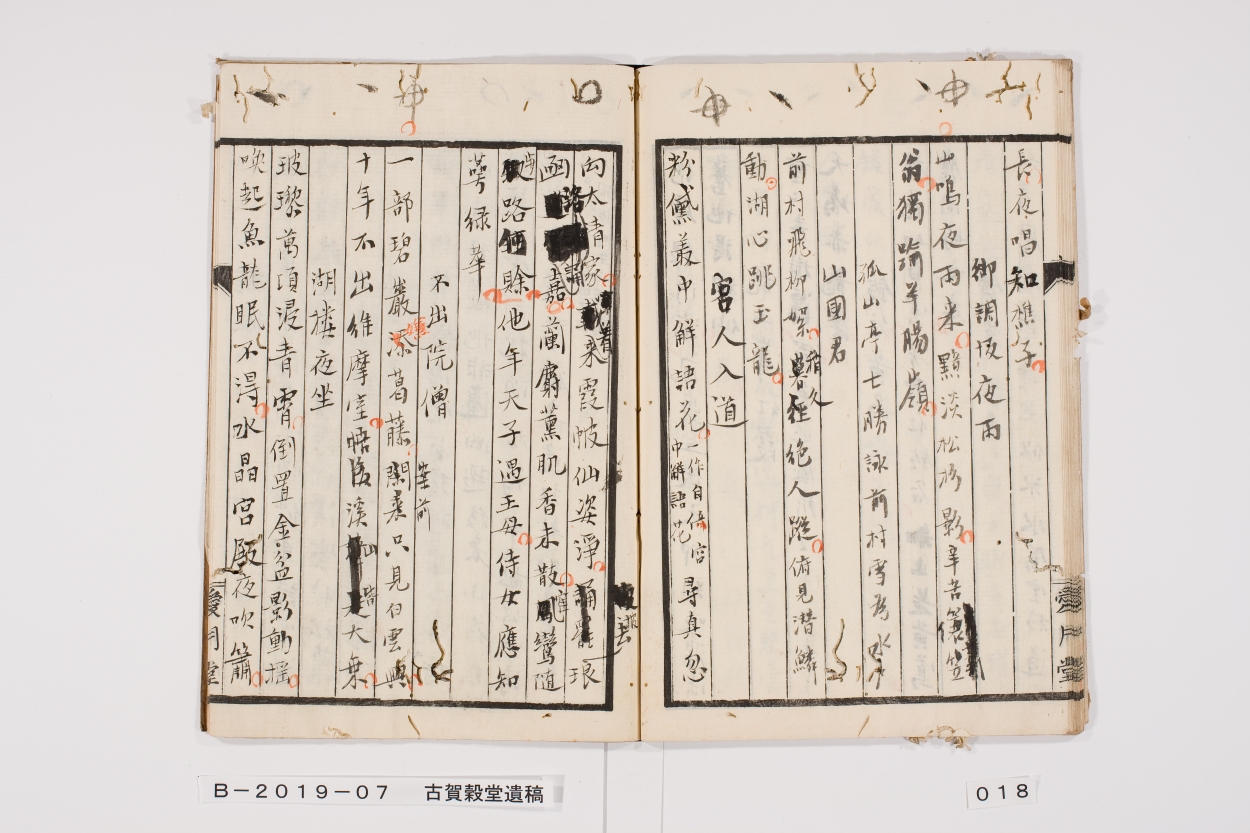 長夜唱知樵子
御調坂夜雨
山鳴夜雨来黯淡松杉影辛苦簑笠
翁獨踰羊腸嶺
孤山亭士勝詠前村雪為
山国君
前村飛柳絮暮径絶人蹤俯見潜鱗
動湖心跳玉龍
宮人入道
粉黛叢中解語花一作自倚宮中解語花尋真忽
向太清家乗霞帔仙姿浄誦罷琅
函嘉蘭麝薫肌香未散鸞随
路賖他年天子遇王母侍女應知
萼緑華
不出院僧
一部碧巌添葛藤案前閑来只見白雲興
十年不出維摩室大乗
湖楼夜坐
玻瓈萬頃浸青霄倒置金盆影動揺
喚起魚龍眠不得水晶宮殿夜吹簫
愛月堂
愛月堂
B-2019-07 古賀穀堂遺稿
018